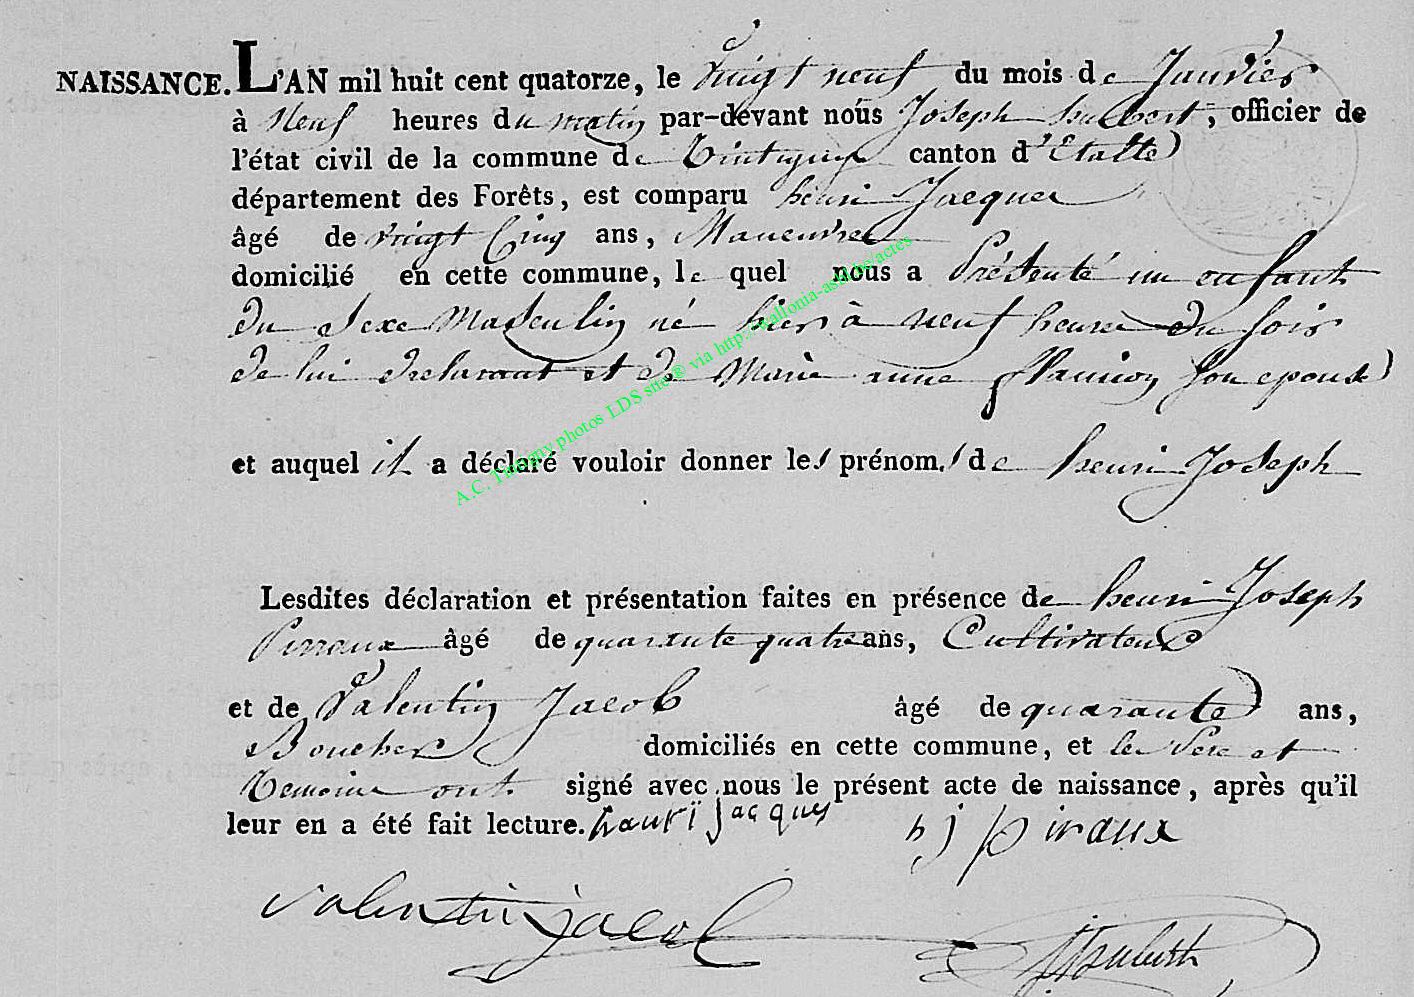 NAISSANCE. L'AN mil huit cent quatorze, le vingt neuf du mois de Janvier
à Neuf heures du matin par-devant nous Joseph hubert, officier de
l'état civil de la commune de Tintigny canton d'Etalle
département des Forêts, est comparu henri Jacques
âgé de vingt Cinq ans, Manœuvre
domicilié en cette commune, le quel nous a Présenté un enfant
du Sexe Masculin né hier à neuf heures du soir
de lui declarant et de Marie anne son epouse
et auquel il a déclaré vouloir donner les prénom.s de henri Joseph
Lesdites déclaration et présentation faites en présence de henri Joseph
Pirraux âgé de quarante quatre ans, Cultivateur
et de Valentin Jacob âgé de quarante ans,
Boucher domiciliés en cette commune, et le Pere et
Temoins ont signé avec nous le présent acte de naissance, après qu'il
leur en a été fait lecture. hanri jacques h j piraux
valentin jacob Hubert
A.C. Tintigny photos LDS site® via http://wallonia-asbl.be/actes